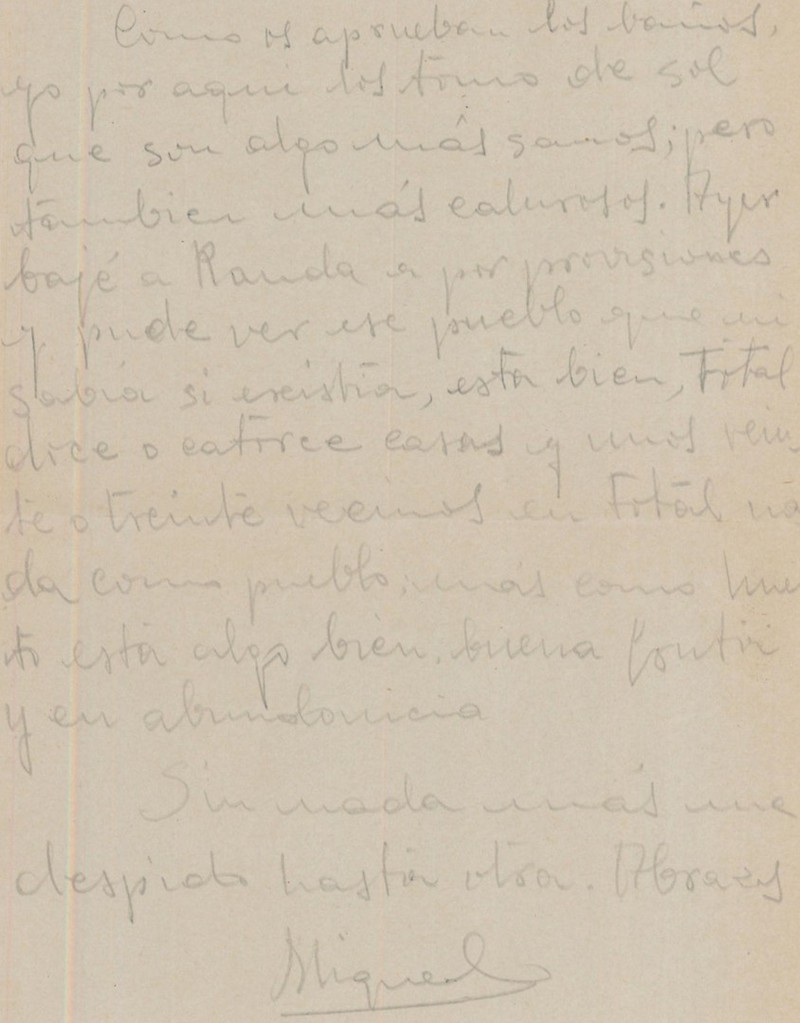 Como os aprueban los baños,
yo por aqui los tomo de sol
que son algo más sanos; pero
tambien más calurosos. Ayer
bajé a Randa a por provisiones
y pude ver ese pueblo que ni
sabia si existia, esta bien, Total
doce o catorce casas y unos vein-
te o treinta vecinos en total na
da como pueblo; más como hue
to está algo bien, buena fruta
y en abundancia
Sin nada más me
despido hasta otra. Abrazos
Miguel